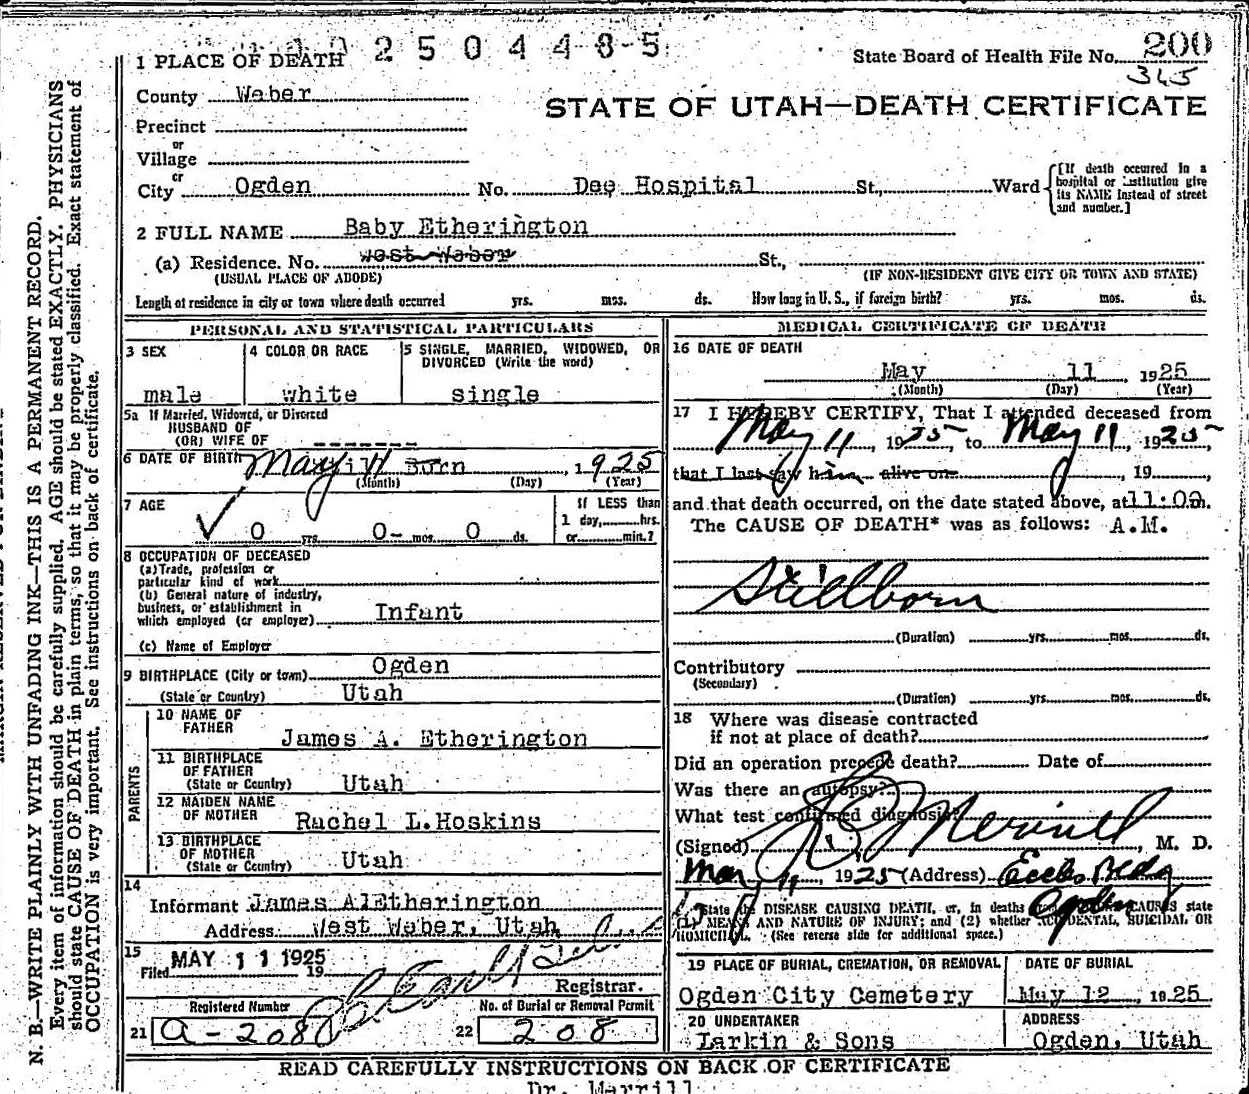 2 5 0 4 4 8 5
1 PLACE OF DEATH
State Board of Health File No. 200
345
County Weber
STATE OF UTAH—DEATH CERTIFICATE
Precinct
or
Village
or
City Ogden No. Dee Hospital St., Ward
[If death occurred in a hospital or institution give its NAME instead of street and number.]
2 FULL NAME Baby Etherington
(a) Residence. No. West Weber St.,
(USUAL PLACE OF ABODE) (IF NON-RESIDENT GIVE CITY OR TOWN AND STATE)
Length of residence in city or town where death occurred yrs. mos. ds. How long in U. S., if foreign birth? yrs. mos. ds.
PERSONAL AND STATISTICAL PARTICULARS
3 SEX
male
4 COLOR OR RACE
white
5 SINGLE, MARRIED, WIDOWED, OR
DIVORCED (Write the word)
single
5a If Married, Widowed, or Divorced
HUSBAND OF
(OR) WIFE OF -------
6 DATE OF BIRTH May 11 Born, 1925
(Month) (Day) (Year)
7 AGE
0 yrs. 0 mos. 0 ds.
If LESS than
1 day, hrs.
or min.?
8 OCCUPATION OF DECEASED
(a) Trade, profession or
particular kind of work
(b) General nature of industry,
business, or establishment in
which employed (or employer) Infant
(c) Name of Employer
9 BIRTHPLACE (City or town) Ogden
(State or Country) Utah
PARENTS
10 NAME OF
FATHER James A. Etherington
11 BIRTHPLACE
OF FATHER
(State or Country) Utah
12 MAIDEN NAME
OF MOTHER Rachel L.Hoskins
13 BIRTHPLACE
OF MOTHER
(State or Country) Utah
14
Informant James A Etherington
Address West Weber, Utah
15 MAY 11 1925
Filed 19
Registrar.
Registered Number
21 a-208
No. of Burial or Removal Permit
22 208
MEDICAL CERTIFICATE OF DEATH
16 DATE OF DEATH
May 11, 1925
(Month) (Day) (Year)
17 I HEREBY CERTIFY, That I attended deceased from
May 11, 1925, to May 11, 1925
that I last saw him alive on 19
and that death occurred, on the date stated above, at 11:00 m.
The CAUSE OF DEATH* was as follows: A.M.
Stillborn
(Duration) yrs. mos. ds.
Contributory
(Secondary)
(Duration) yrs. mos. ds.
18 Where was disease contracted
if not at place of death?
Did an operation precede death? Date of
Was there an autopsy?
What test confirmed diagnosis?
(Signed) Merrill, M. D.
May 11, 1925 (Address) Eccles Bldg
Ogden
State the DISEASE CAUSING DEATH, or, in deaths CAUSES state
(1) MEANS AND NATURE OF INJURY; and (2) whether ACCIDENTAL, SUICIDAL OR
HOMICIDAL. (See reverse side for additional space.)
19 PLACE OF BURIAL, CREMATION, OR REMOVAL
Ogden City Cemetery
DATE OF BURIAL
May 12, 1925
20 UNDERTAKER
Larkin & Sons
ADDRESS
Ogden, Utah
READ CAREFULLY INSTRUCTIONS ON BACK OF CERTIFICATE
Dr. Merrill
N. B.—WRITE PLAINLY WITH UNFADING INK—THIS IS A PERMANENT RECORD.
Every item of information should be carefully supplied. AGE should be stated EXACTLY. PHYSICIANS
should state CAUSE OF DEATH in plain terms, so that it may be properly classified. Exact statement of
OCCUPATION is very important. See instructions on back of certificate.